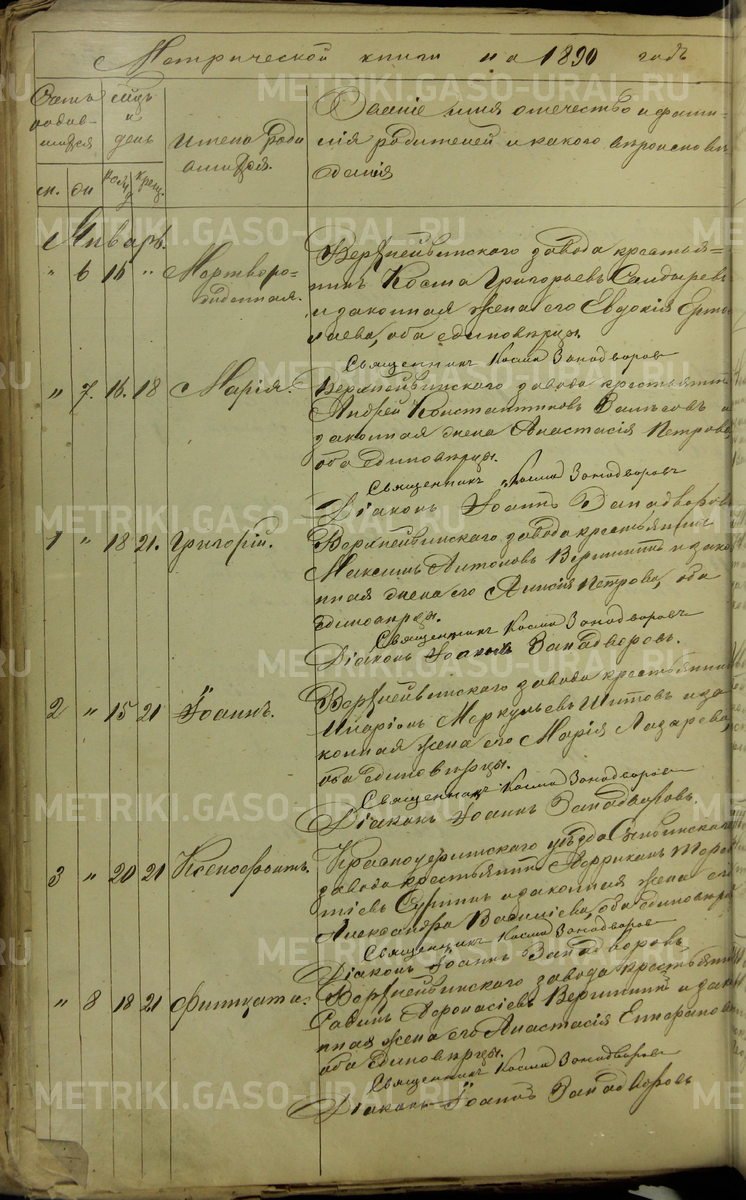 Метрической книги на 1890 годъ
Счетъ родив-шихся
мѣсяцъ и день
Имена родившихся.
Званіе имя отечество и фами-
лія родителей и какого вѣроисповѣ
данія
м. ж.
рожд. крещ.
Январь.
" 6 15 " Мертворо-
жденная.
Верхнейвинского завода крестья-
нинъ Косма Григорьевъ
и законная жена его Евдокія Ермо
лаева, оба единовѣрцы.
Священникъ Косма Западворовъ
" 7. 16. 18 Марія.
Верхнейвинского завода крестьянинъ
Андрей Константиновъ и
законная жена Анастасія Петрова
оба единовѣрцы.
Священникъ Косма Западворовъ
Діаконъ Іоаннъ Западворовъ
1 " 18 21. Григорій.
Верхнейвинского завода крестьянинъ
Максимъ Антоновъ Вершининъ и зако
нная жена его Петрова, оба
единовѣрцы.
Священникъ Косма Западворовъ
Діаконъ Іоаннъ Западворовъ.
2 " 15 21 Іоаннъ.
Верхнейвинского завода крестьянинъ
Иларіонъ Меркурьевъ Шитовъ и за
конная жена его Марія Лазарева,
оба единовѣрцы.
Священникъ Косма Западворовъ
Діаконъ Іоаннъ Западворовъ.
3 " 20 21 Ксенофонтъ.
Красноуфимского уѣзда
завода крестьянинъ
и законная жена его
Александра Василіева, оба единовѣрцы
Священникъ Косма Западворовъ
Діаконъ Іоаннъ Западворовъ
" 8 18 21 Фитицата.
Верхнейвинского завода крестьянинъ
Савинъ Афонасіевъ Вершининъ и зако
нная жена его Анастасія
оба единовѣрцы.
Священникъ Косма Западворовъ
Діаконъ Іоаннъ Западворовъ
METRIKI.GASO-URAL.RU